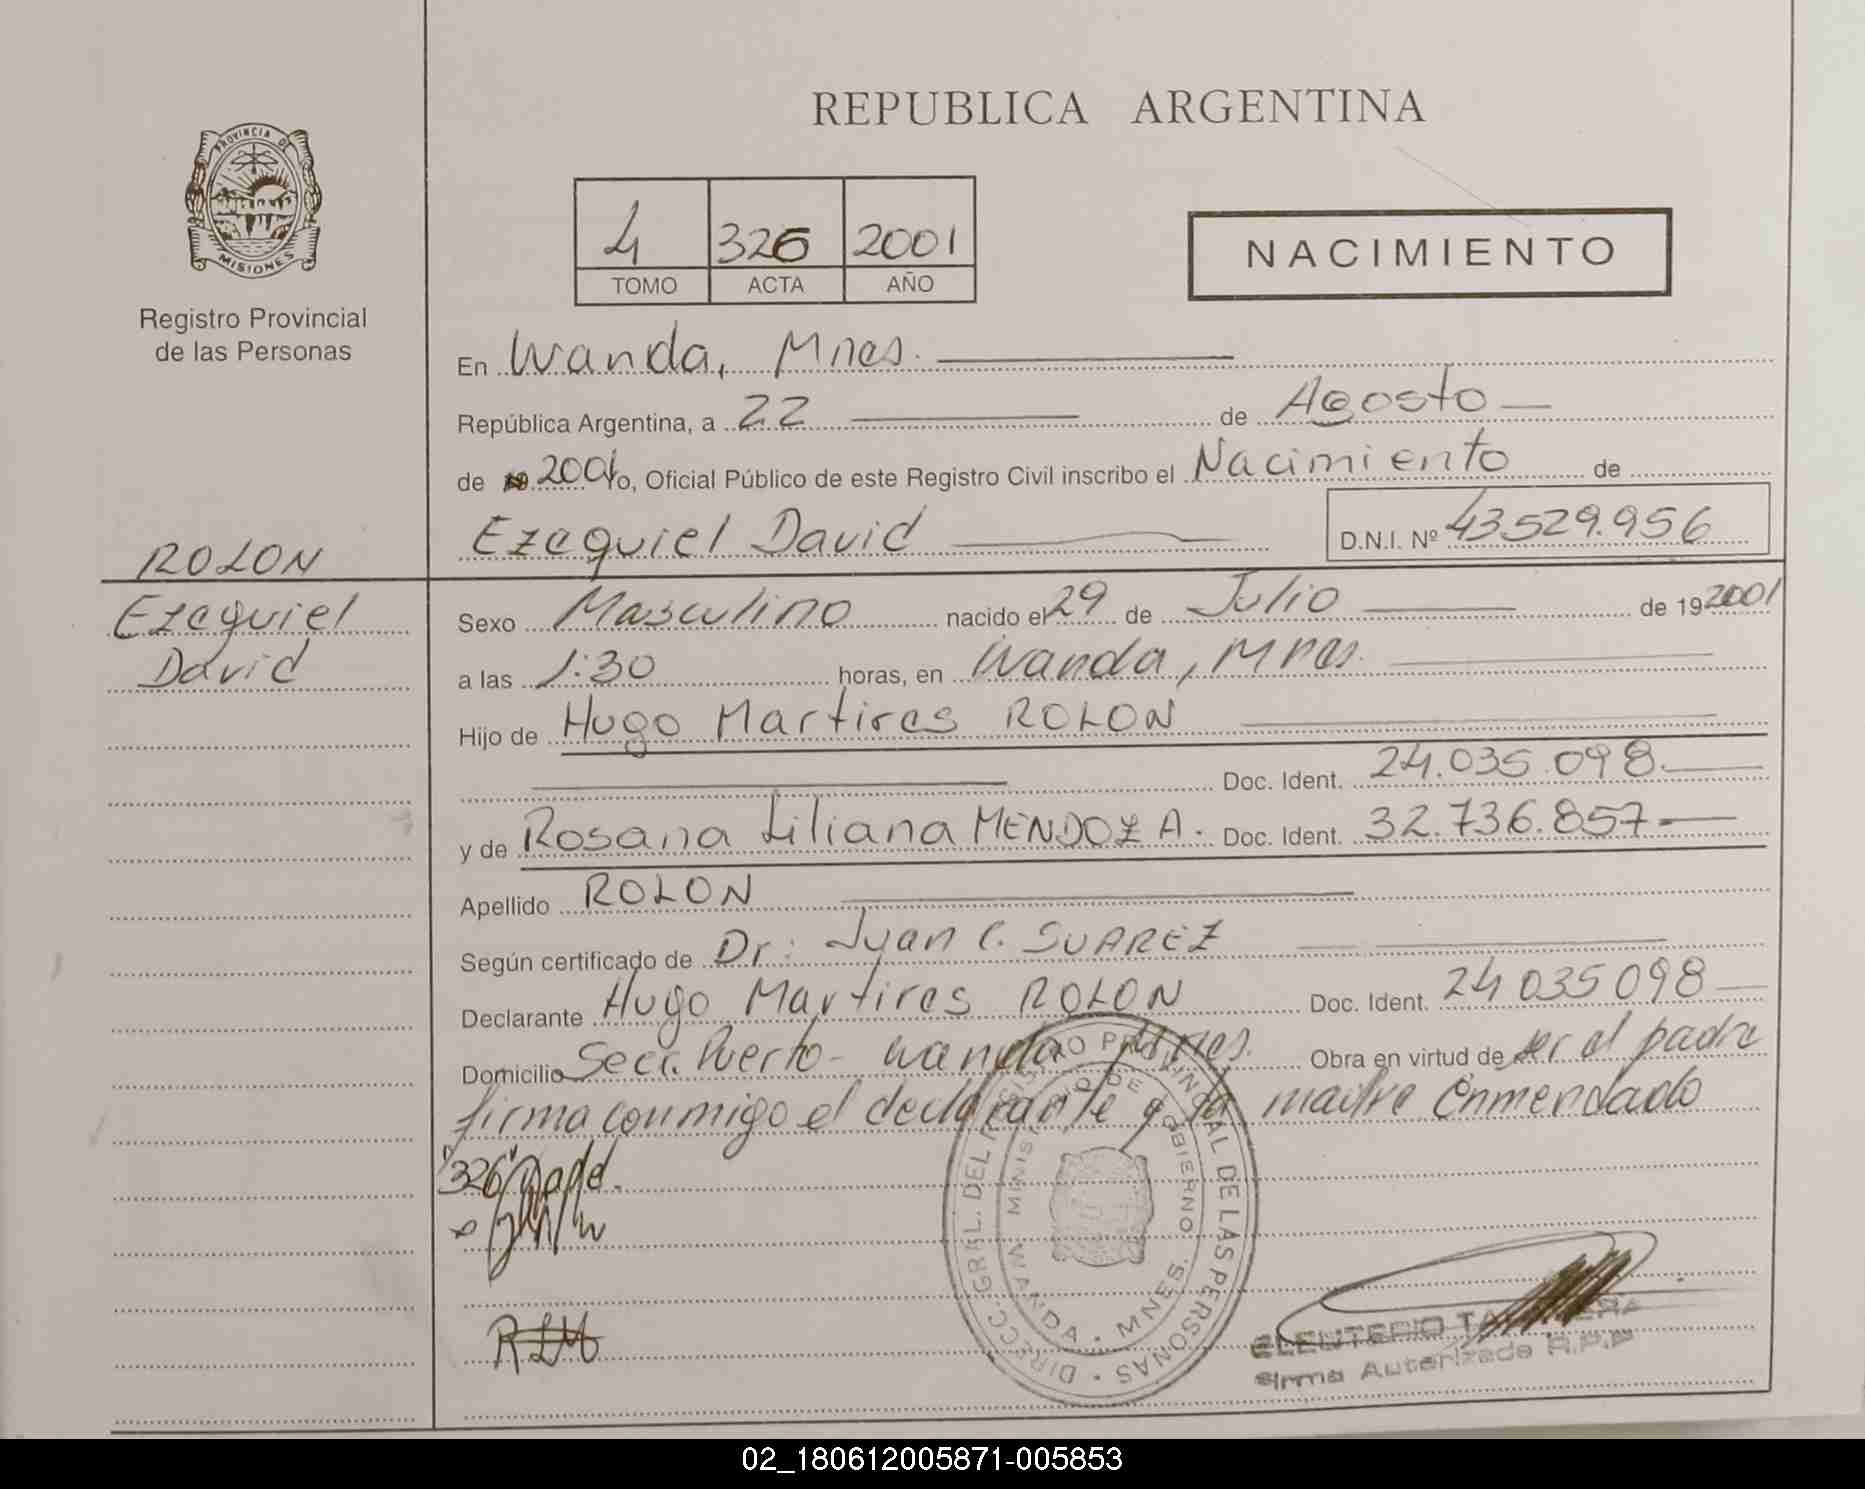 REPUBLICA ARGENTINA
PROVINCIA DE
MISIONES
Registro Provincial
de las Personas
4 326 2001
TOMO ACTA AÑO
NACIMIENTO
En Wanda, Mnes.
República Argentina, a 22 de Agosto
de 2001 yo, Oficial Público de este Registro Civil inscribo el Nacimiento de
Ezequiel David D.N.I. Nº 43529.956
ROLON
Ezequiel
David
Sexo Masculino nacido el 29 de Julio de 19 2001
a las 1:30 horas, en Wanda, Mnes.
Hijo de Hugo Martires ROLON
Doc. Ident. 24.035.098.
y de Rosana Liliana MENDOZA. Doc. Ident. 32.736.857
Apellido ROLON
Según certificado de Dr: Juan C. SUAREZ
Declarante Hugo Martires ROLON Doc. Ident. 24035098
Domicilio Secc. Puerto - Wanda Mnes. Obra en virtud de ser el padre
firma conmigo el declarante y la madre Enmendado
"326" Vale.
RLM
DIRECC. GRAL. DEL REGISTRO PROVINCIAL DE LAS PERSONAS
MINISTERIO DE GOBIERNO
WANDA - MNES.
ELEUTERIO
Firma Autorizada R.P.P
02_180612005871-005853